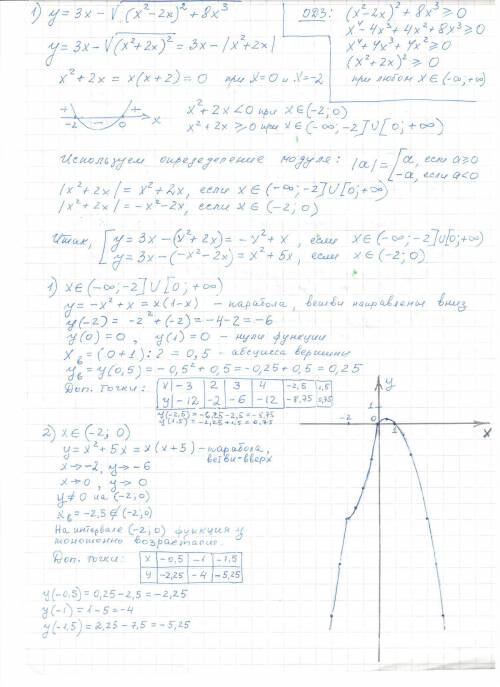 1) y = 3x - √((x²-2x)² + 8x³)
ОДЗ: (x²-2x)² + 8x³ ≥ 0
x⁴ - 4x³ + 4x² + 8x³ ≥ 0
x⁴ + 4x³ + 4x² ≥ 0
(x² + 2x)² ≥ 0
при любом x ∈ (-∞; +∞)
y = 3x - √(x²+2x)² = 3x - |x²+2x|
x² + 2x = x(x+2) = 0 при x=0 и x=-2
+ - + -2 0 x
x²+2x < 0 при x ∈ (-2; 0)
x²+2x ≥ 0 при x ∈ (-∞; -2] ∪ [0; +∞)
Используем определение модуля: |a| = [a, если a ≥ 0
-a, если a < 0
|x²+2x| = x²+2x, если x ∈ (-∞; -2] ∪ [0; +∞)
|x²+2x| = -x²-2x, если x ∈ (-2; 0)
Итак, [y = 3x - (x²+2x) = -x² + x, если x ∈ (-∞; -2] ∪ [0; +∞)
y = 3x - (-x²-2x) = x² + 5x, если x ∈ (-2; 0)
1) x ∈ (-∞; -2] ∪ [0; +∞)
y = -x² + x = x(1-x) - парабола, ветви направлены вниз
y(-2) = -2² + (-2) = -4-2 = -6
y(0) = 0, y(1) = 0 - нули функции
xв = (0+1):2 = 0,5 - абсцисса вершины
yв = y(0,5) = -0,5² + 0,5 = -0,25 + 0,5 = 0,25
Доп. точки:
x -3 2 3 4 -2,5 1,5
y -12 -2 -6 -12 -8,75 0,75
y(-2,5) = -6,25-2,5 = -8,75
y(1,5) = -2,25+1,5 = 0,75
2) x ∈ (-2; 0)
y = x² + 5x = x(x+5) - парабола,
ветви-вверх
x → -2, y → -6
x → 0, y → 0
y ≠ 0 на (-2; 0)
xв = -2,5 ∉ (-2; 0)
На интервале (-2; 0) функция y
монотонно возрастает.
Доп. точки:
x -0,5 -1 -1,5
y -2,25 -4 -5,25
y(-0,5) = 0,25 - 2,5 = -2,25
y(-1) = 1-5 = -4
y(-1,5) = 2,25 - 7,5 = -5,25
y
1
-2 0 1
x